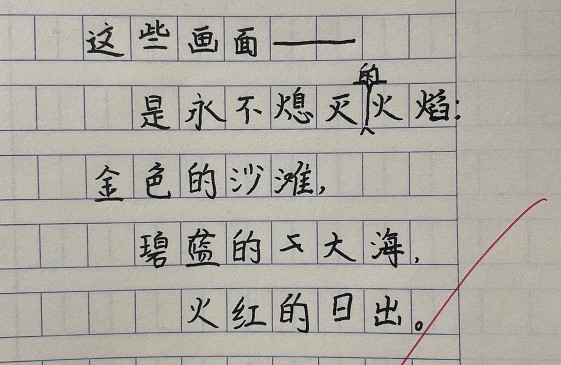 这些画面——
是永不熄灭的火焰:
金色的沙滩,
碧蓝的大海,
火红的日出。